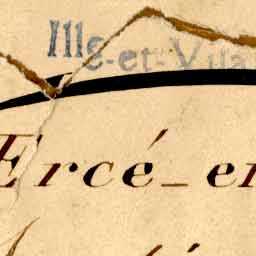 Ille-et-Vilai
Ercé-en